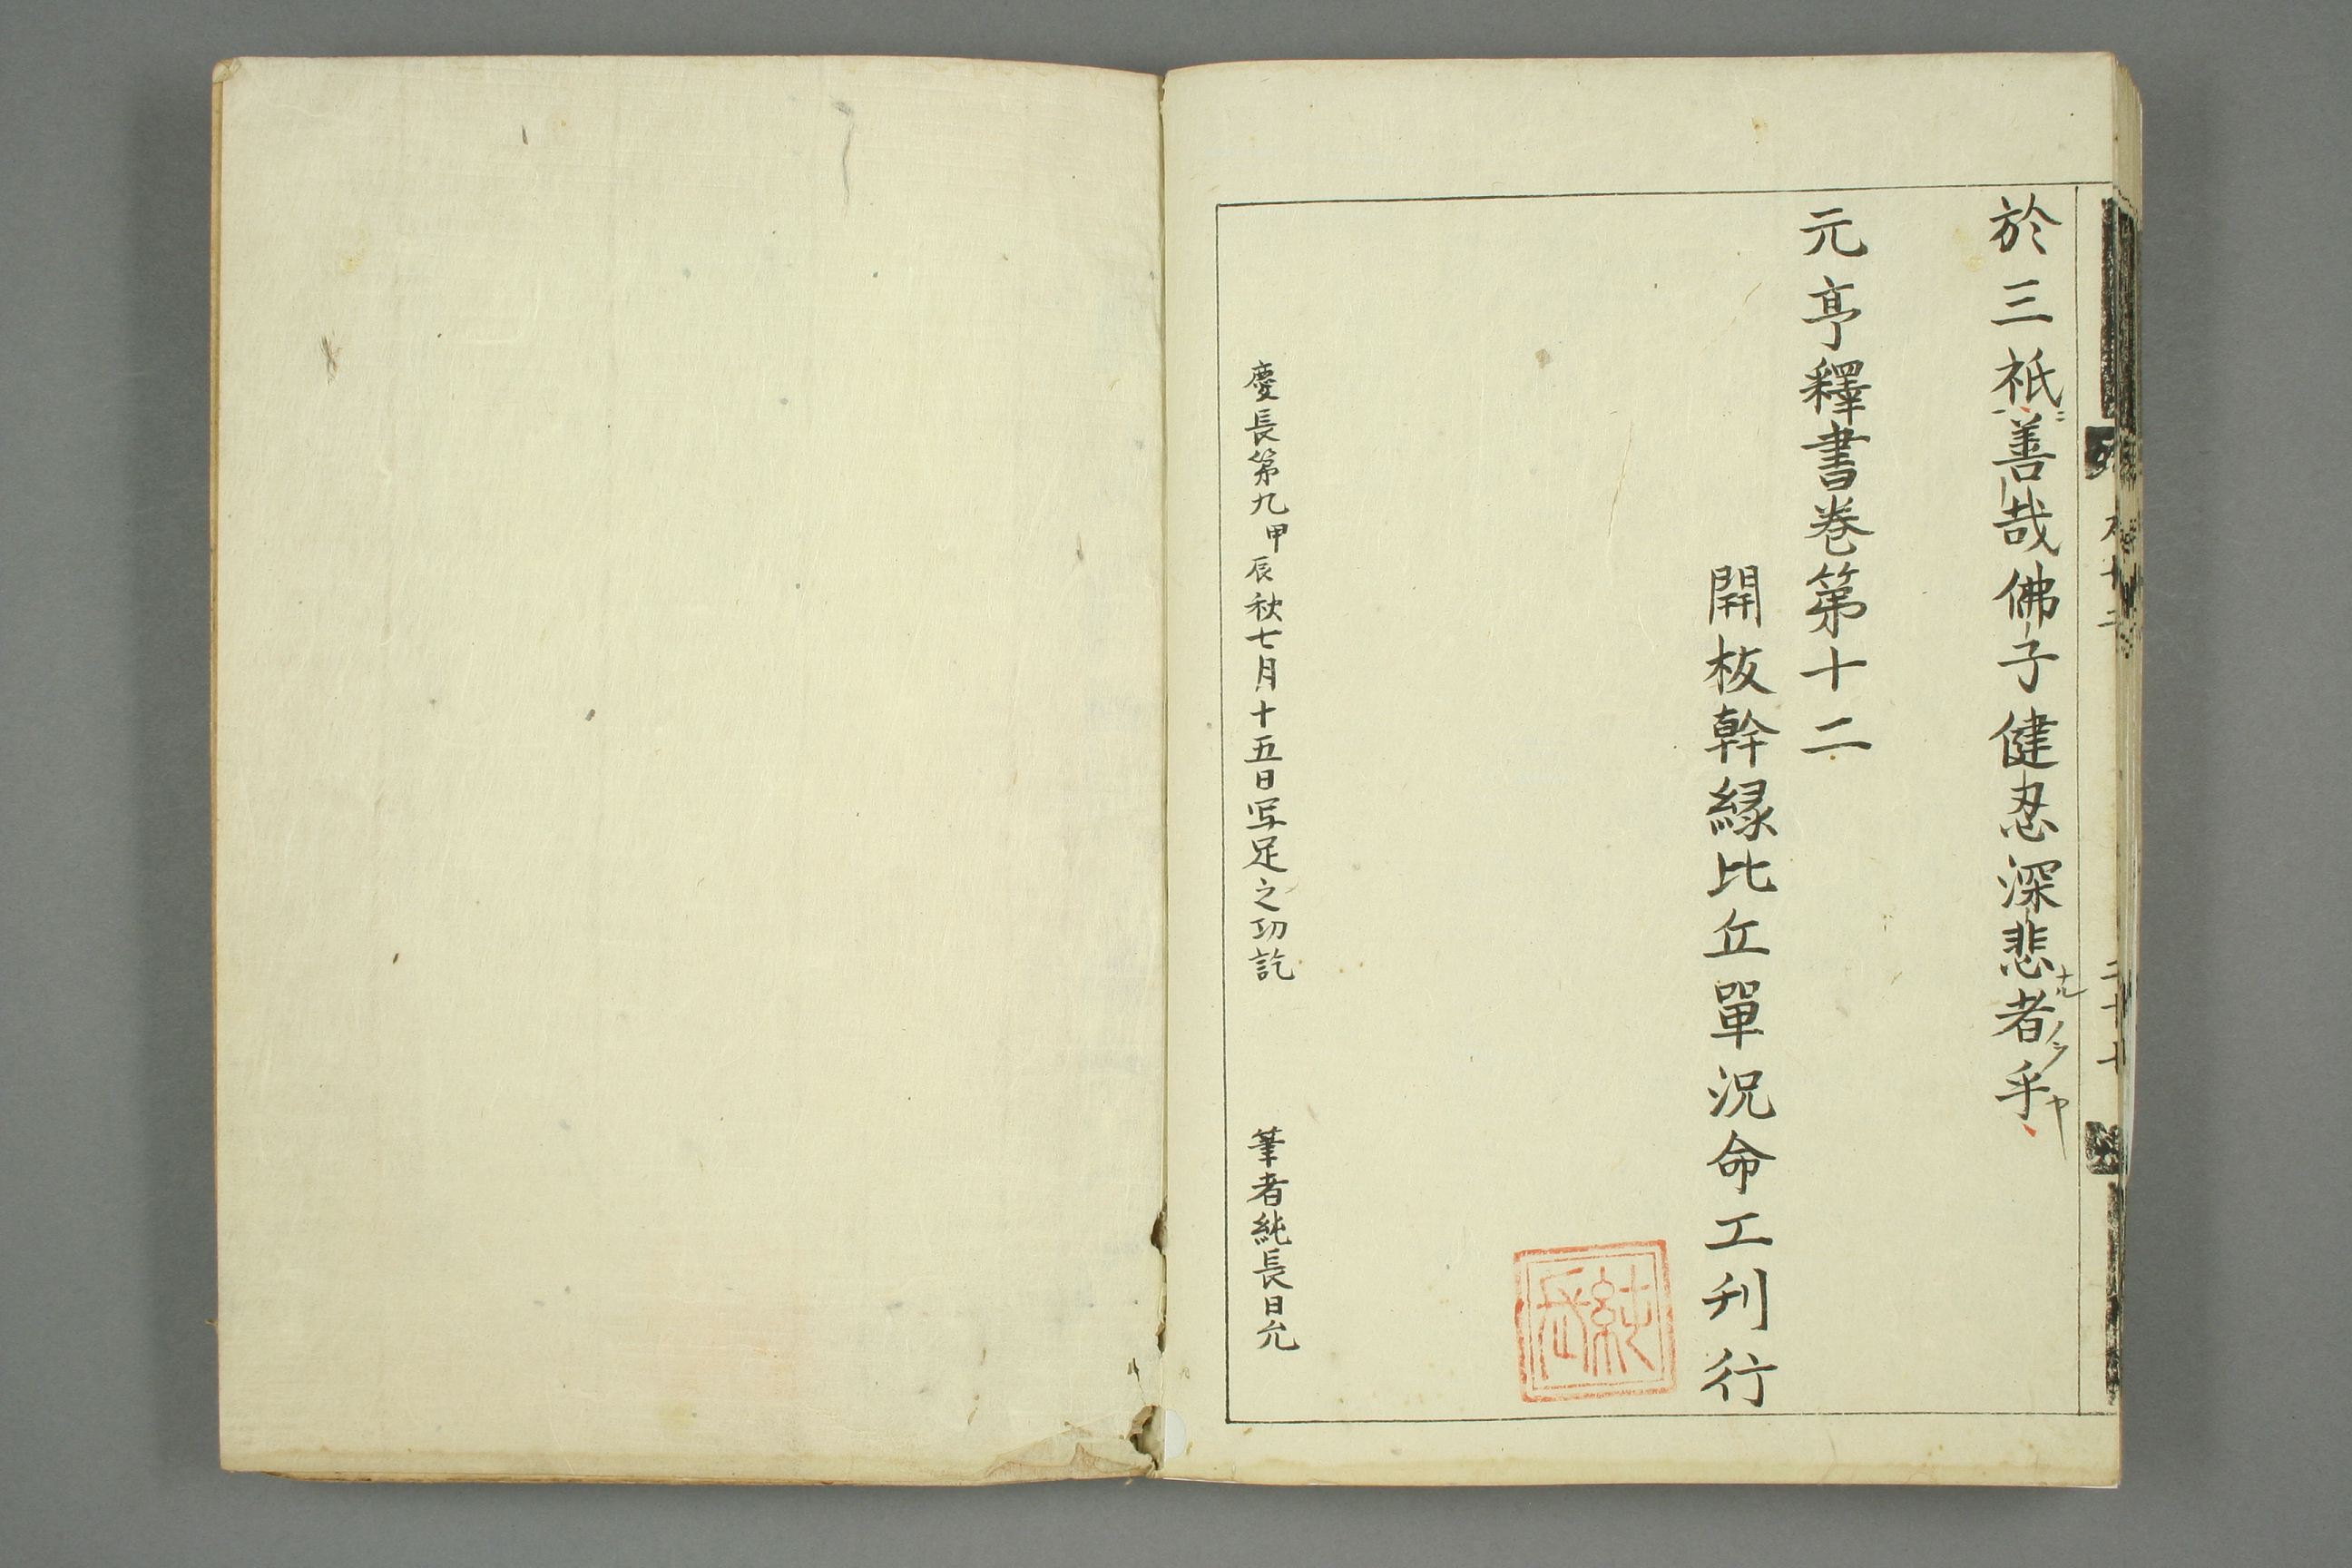 於三祇善哉佛子健忍深悲者乎
元亨釋書巻第十二
開板幹縁比丘單況命工刊行
慶長第九甲辰秋七月十五日写足之功訖　筆者純長日允